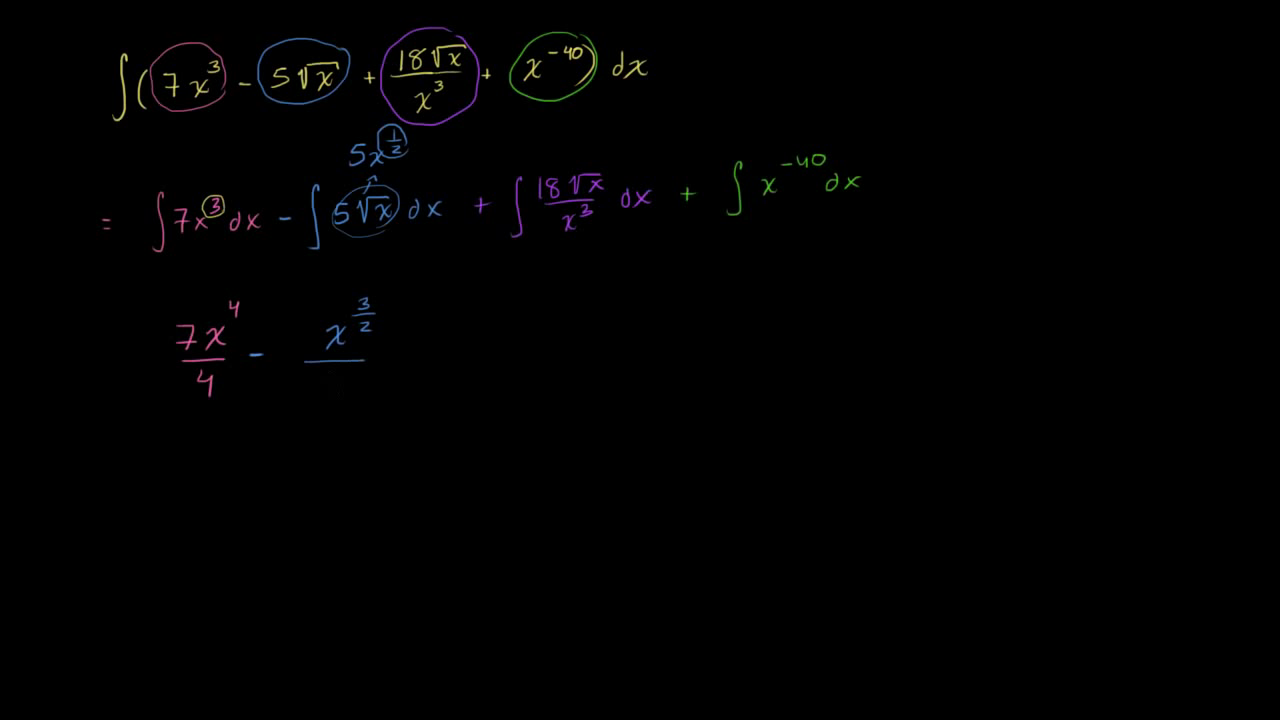 ∫(7x³ - 5√x + 18√x/x³ + x⁻⁴⁰) dx
5x^(1/2)
= ∫7x³dx - ∫5√x dx + ∫18√x/x³ dx + ∫x⁻⁴⁰dx
7x⁴/4 - x^(3/2)/